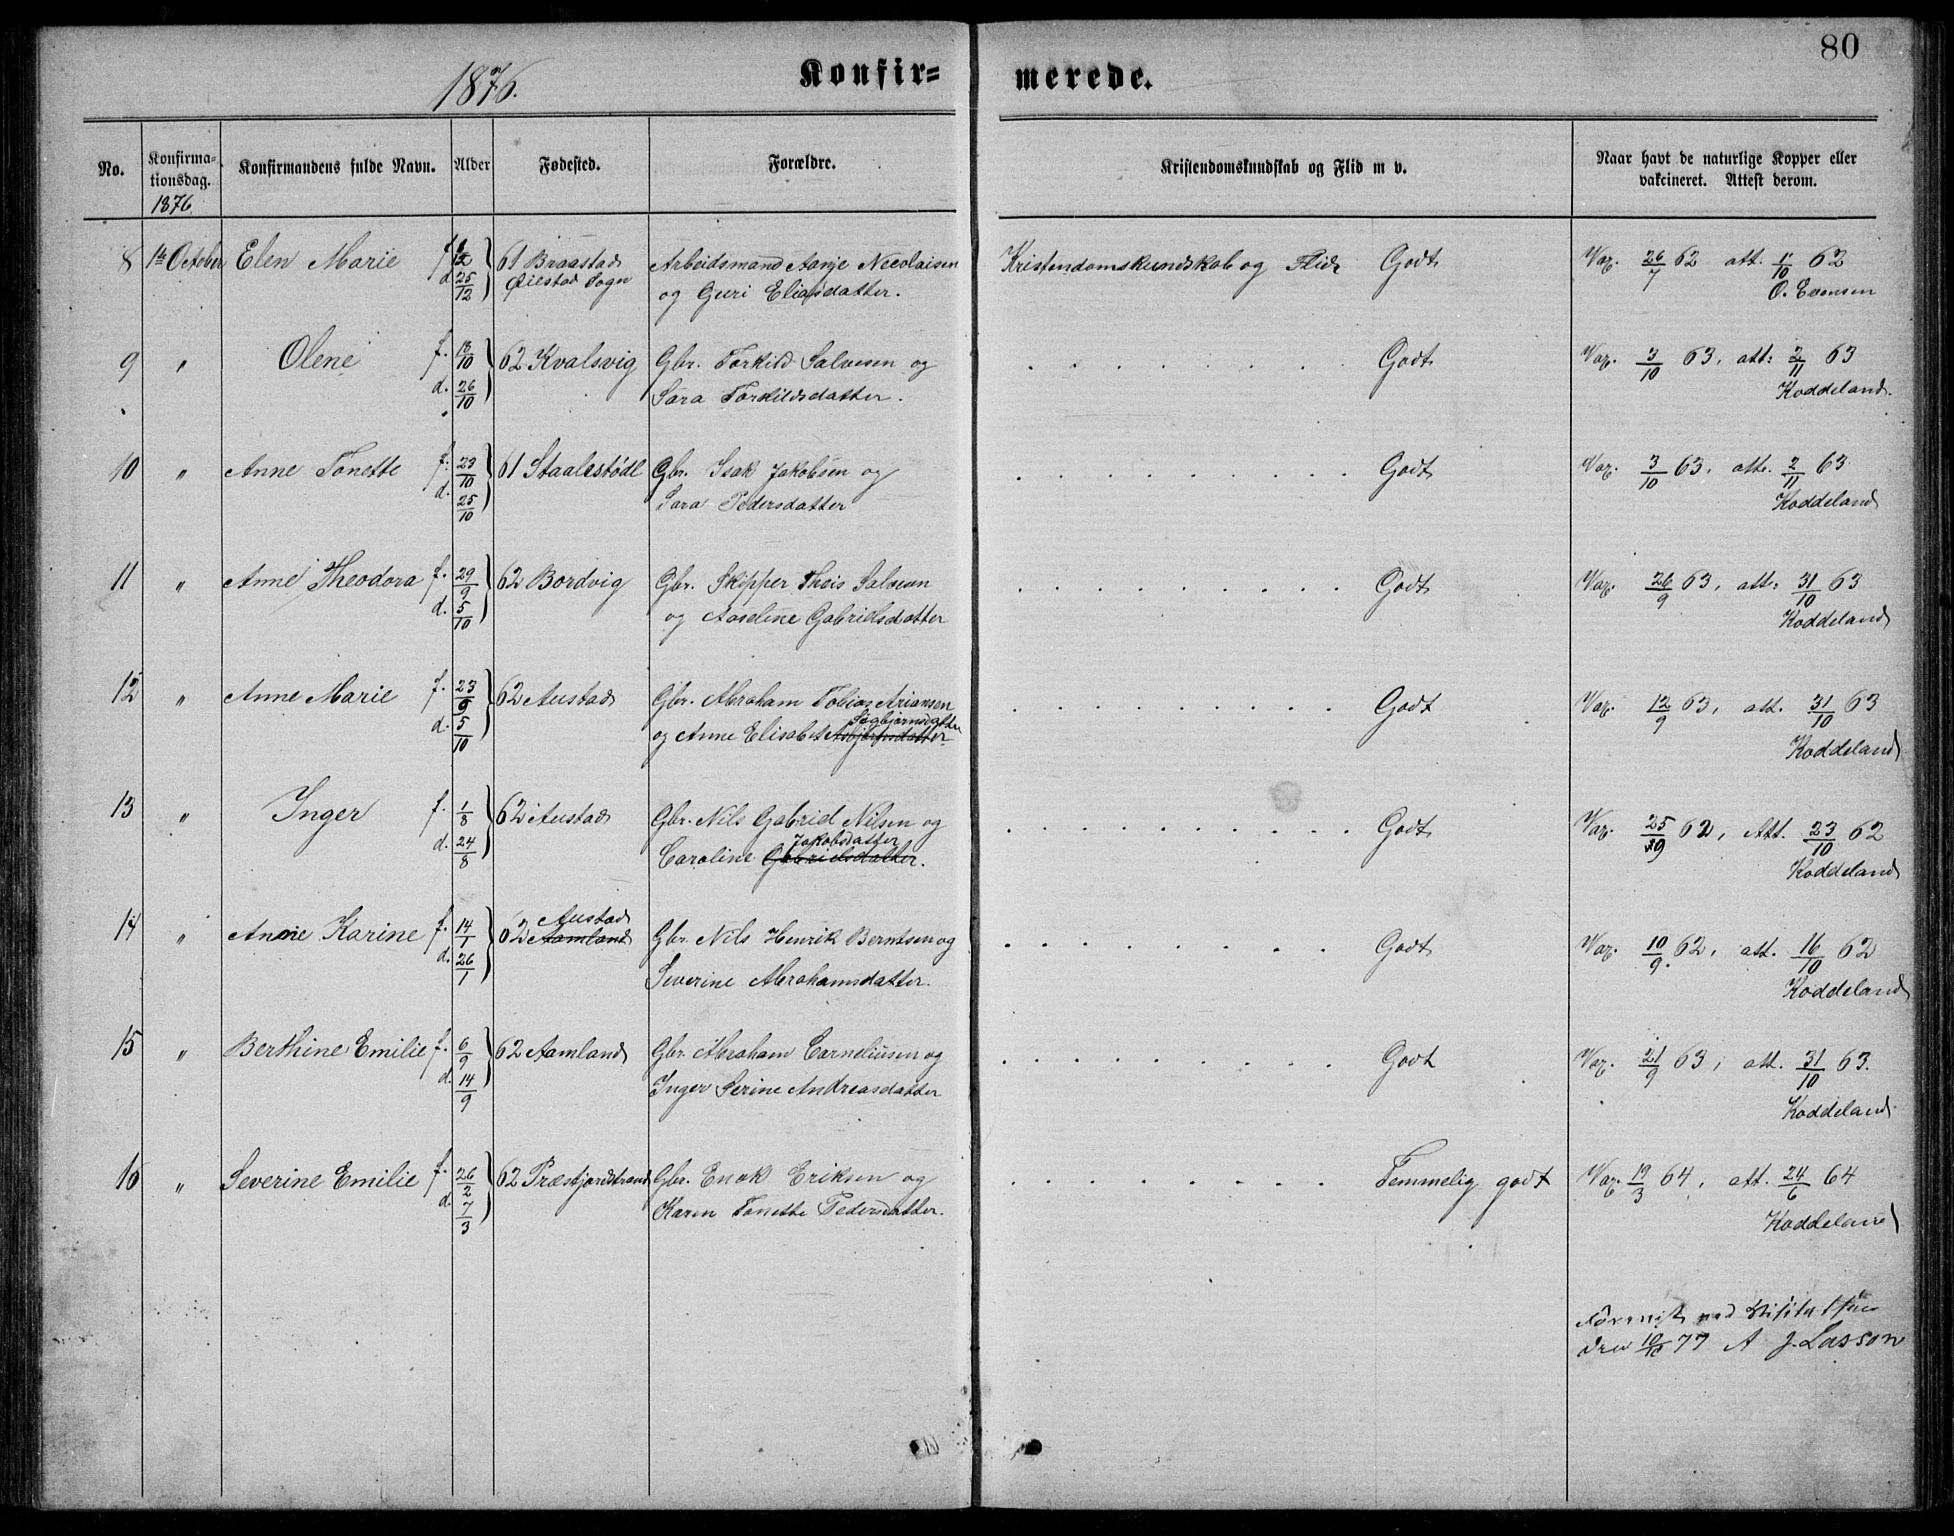 80
1876.
Konfir= merede.
No. Konfirma-tionsdag. Konfirmandens fulde Navn. Alder Fødested. Forældre. Kristendomskundskab og Flid m v. Naar havt de naturlige Kopper eller vakcineret. Attest derom.
1876
8 1ste October Elen Marie f. d. 25/12 } 61 Braastad Arbeidsmand Aanje Nicolaisen Kristendomskundskab og Flid Godt Vax. 26/7 62 att. 1/10 62
Øiestad Sogn og Guri Eliasdatter. O. Evensen
9 " Olene f. 13/10 } 62 Kvalsvig Gbr. Torkild Salvesen og . . . . . . . . Godt Vax. 3/10 63, att: 2/11 63
d. 26/10 Sara Torkildsdatter. Koddeland.
10 " Anne Tonette f. 23/10 } 61 Staalestødl Gbr. Isak Jakobsen og . . . . . . . . . Godt Vax. 3/10 63, att. 2/11 63
d. 25/10 Sara Pedersdatter Koddeland
11 " Anne Theodora f. 29/9 } 62 Bordvig Gbr. Skipper Theis Salvesen . . . . . . . . . Godt Vax. 26/9 63, att: 31/10 63
d. 5/10 og Aaseline Gabrielsdatter Koddeland
12 " Anne Marie f. 23/9 } 62 Austad Gbr. Abraham Tobias Ariansen . . . . . . . . . Godt Vax. 12/9 63, att. 31/10 63
d. 5/10 og Anne Elisabet Asbjørnsdatter Koddeland
13 " Inger f. 1/8 } 62 Austad Gbr. Nils Gabriel Nilsen og . . . . . . . . . . Godt Vax. 25/9 62, Att. 23/10 62
d. 24/8 Caroline Gabrielsdatter. Jakobsdatter Koddeland
14 " Anne Karine f. 14/1 } 62 Aamland Austad Gbr. Nils Henrik Berntsen og . . . . . . . . . Godt Vax. 10/9. 62, att. 16/10 62
d. 26/1 Severine Abrahamsdatter. Koddeland
15 " Berthine Emilie f. 6/9 } 62 Aamland Gbr. Abraham Corneliusen og . . . . . . . . . Godt Vax. 21/9 63, att. 31/10 63.
d. 14/9 Inger Serine Andreasdatter Koddeland
16 " Severine Emilie f. 26/2 } 62 Præstjordstrand Gbr. Enok Eriksen og . . . . . . . . . Temmelig godt Vax. 19/3 64, att. 24/6 64
d. 7/3 Karen Tonette Pedersdatter. Koddeland
ved Visitatsen
den 10/10 77 A J. Lasson